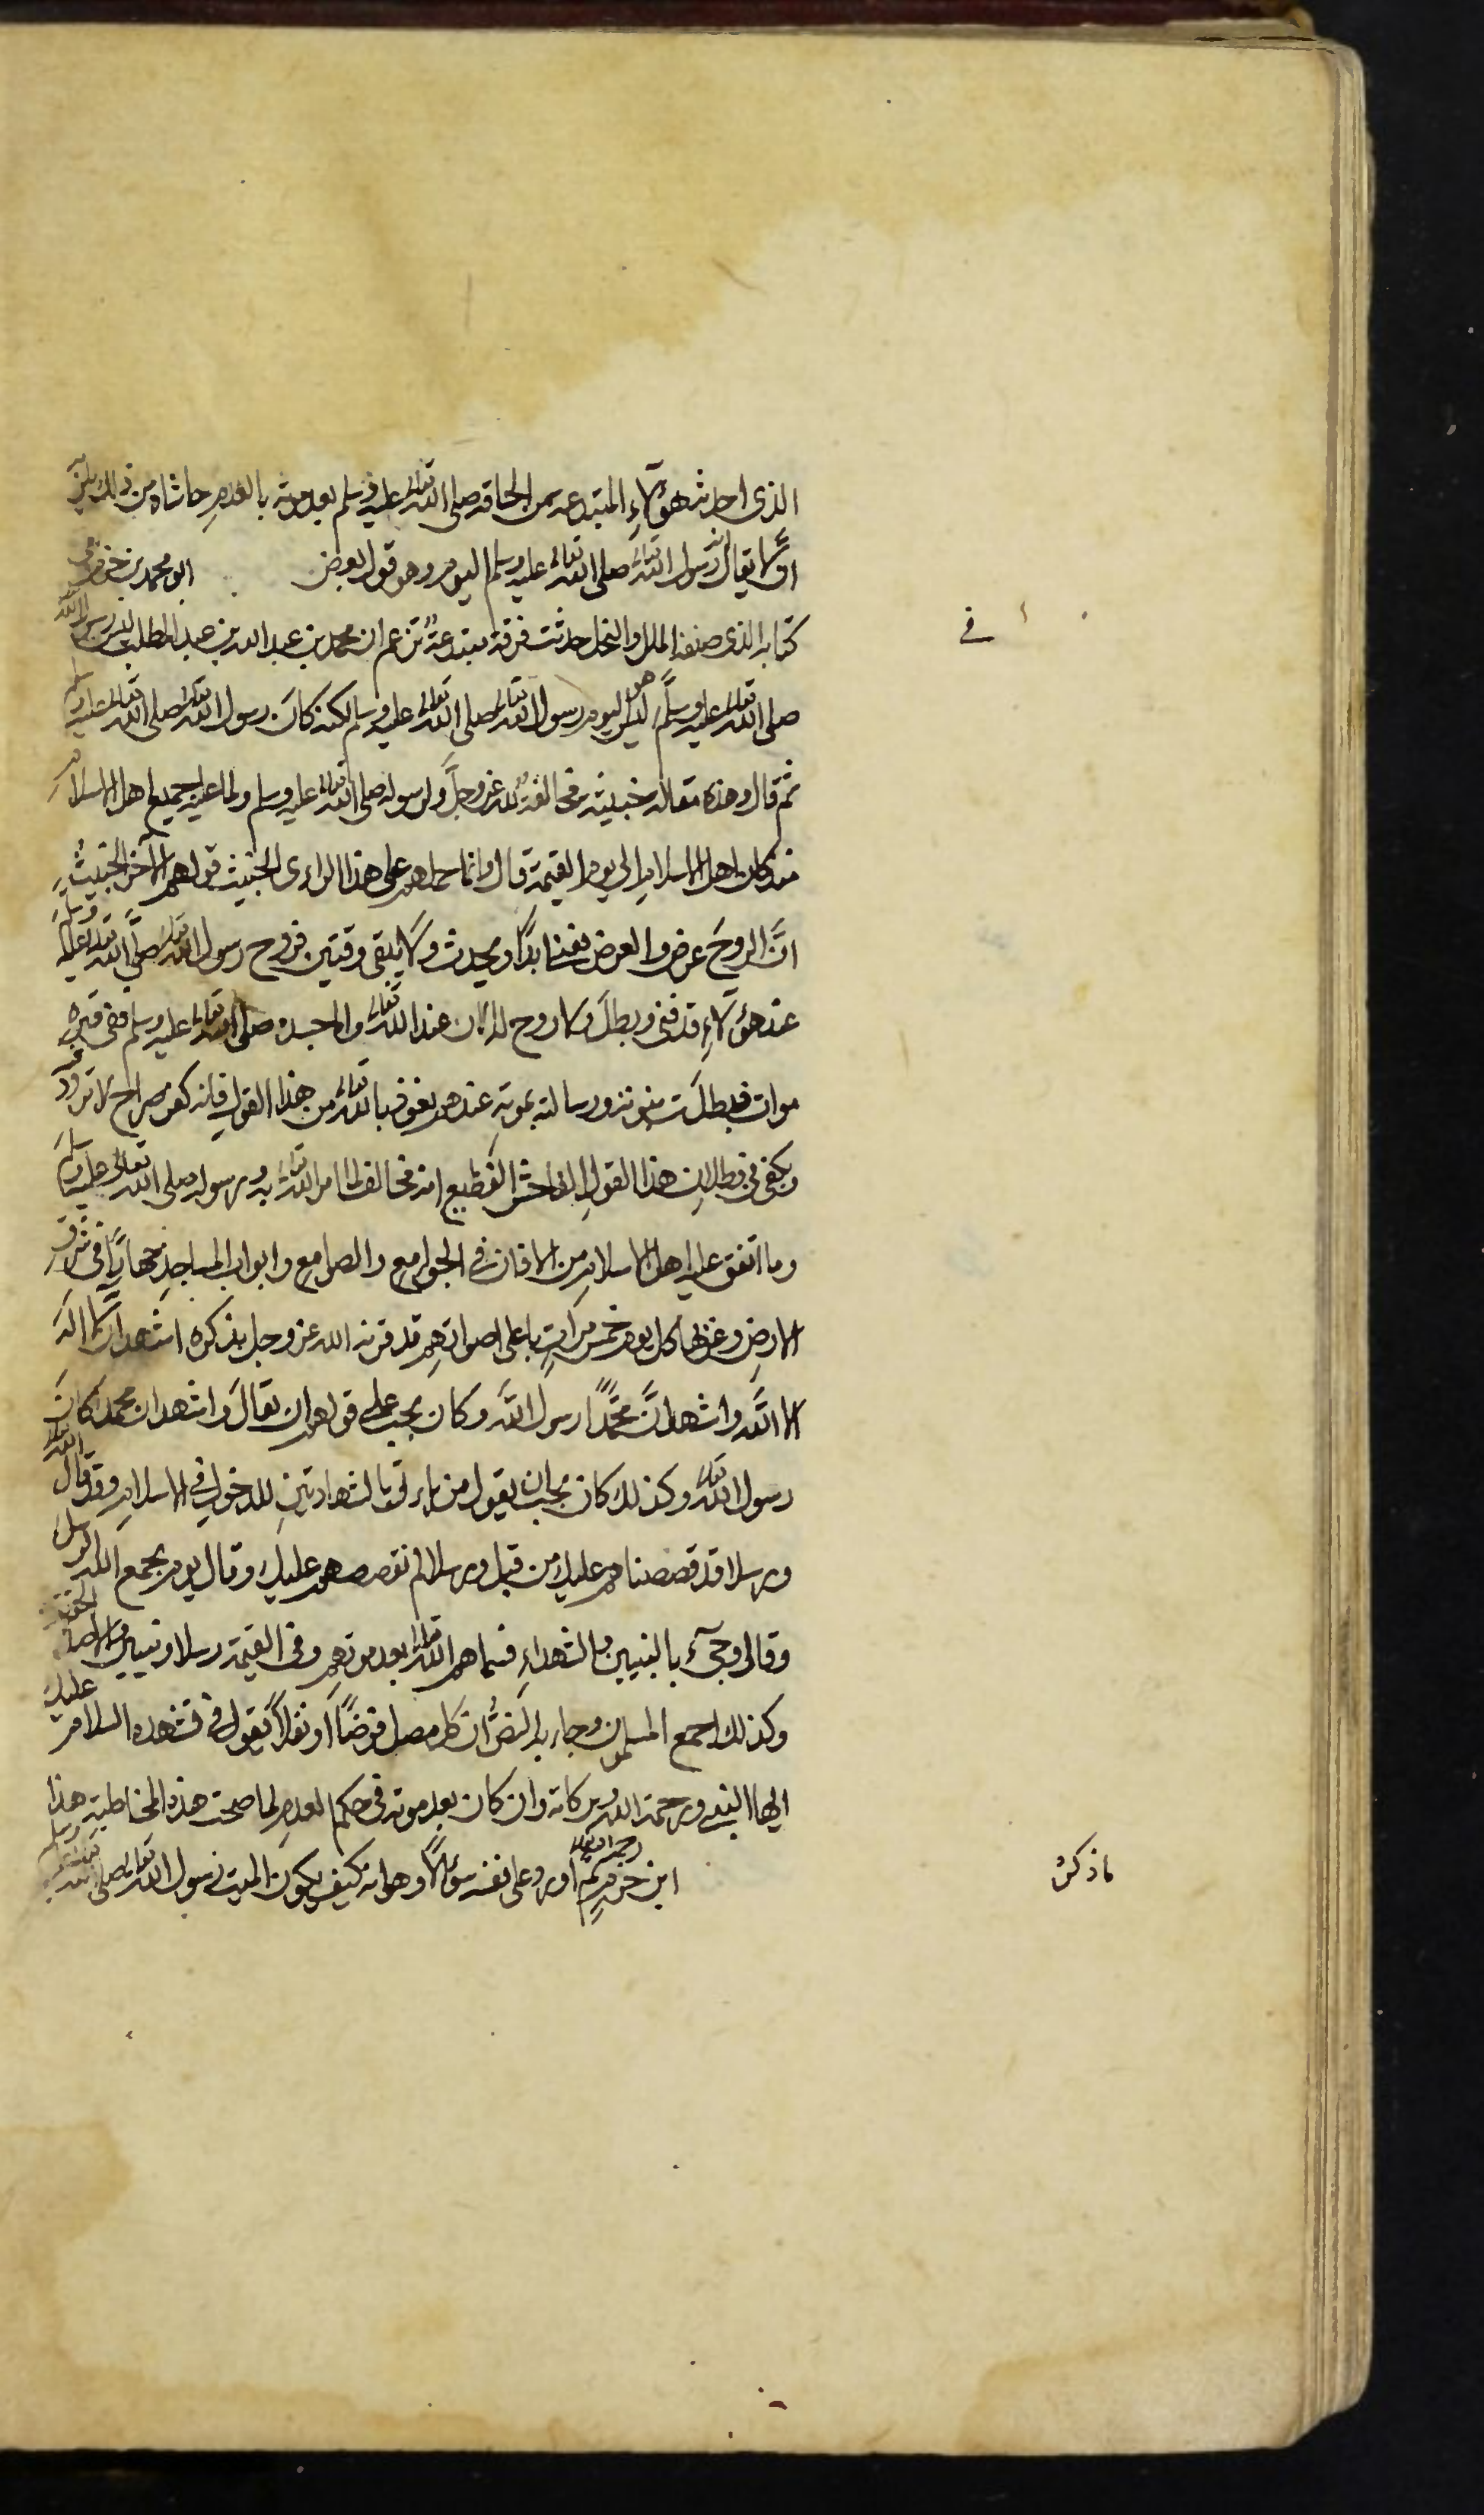 الذى احدث هؤلاءِ المبتدعه من الحاقه صلى الله تعالى عليه وسلم بعد موته بالعدمِ حاشاه من ذلك
لا يقال انه رسول الله تعالى صلى الله تعالى عليه وسلم اليوم وهو قول بعض ابو محمد بن حزم فى
فى
كتابه الذى صنفه الملل والنحل حدثت فرقة مبتدعةٌ تزعم ان محمد بن عبد الله بن عبد المطلب رسول الله
صلى الله تعالى عليه وسلَّم ليس هو اليوم رسول الله تعالى صلى الله تعالى عليه وسلم لكنه كانَ رسول الله تعالى صلى الله تعالى عليه وسلم
ثم قال وهذه مقالة خبيثة مخالفةٌ لله عز وجلَّ ولرسوله صلى الله تعالى عليه وسلم ولما عليه جميع اهل الاسلام
منذ كان اهل الاسلامِ الى يوم القيمة قال وانما حملهم على هذا الراى الخبيث قولهم الآخر الخبيثُ
انَّ الروحَ عرض والعرض يفنى ابدًا ويحدث ولا يبقى وقتين فروح رسول الله تعالى صلَّى الله تعالى عليه وسلم
عند هؤلاءِ قد فنى وبطلَ ولا روح له الان عند الله تعالى واما جسده صلى الله تعالى عليه وسلم ففى قبره
موات فبطلَت نبوته ورسالته بموته عندهم نعوذ بالله تعالى من هذا القولِ فانه كفر صراح لا تردد
ويكفى فى بطلانِ هذا القولِ الفاحش الفظيع انه مخالف لما امر الله تعالى به ورسوله صلى الله تعالى عليه وسلم
وما اتفق عليه اهل الاسلامِ من الاذان فى الجوامع والصوامع وابواب المساجدِ جهارًا فى شرق
الارضِ وغربها كل يوم خمس مراتٍ باعلى اصواتهِم قد قرنه الله عز وجل بذكره اشهد ان لا الهَ
الا اللَّه واشهد انَّ محمَّدًا رسول اللَّه وكان يجب على قولهم ان يقالَ واشهد ان محمدا كانَ
رسول الله تعالى وكذلك كان يجب ان يقول من ياتى بالشهادتينِ للدخولِ فى الاسلامِ وقد قال الله تعالى
ورسلا قد قصصناهم عليك من قبل ورسلا لم نقصصهم عليك وقال يوم يجمع الله الرسلَ
وقال وجىء بالنبيين والشهداءِ فسماهم الله تعالى بعد موتهِم وفى القيمة رسلا ونبيين
وكذلك اجمع المسلمون وجاء به النصُّ ان كل مصل فرضًا او نفلاً يقول فى تشهده السلام عليك
ايها النبى ورحمة الله وبركاته وان كان بعد موته فى حكم العدمِ لما صحت هذه المخاطبة هذا
ما ذكرهُ
ابن حزم رحمه الله تعالى اورد على نفسه سؤالاً وهو انه كيف يكون الميت رسول الله تعالى صلى الله تعالى عليه وسلم